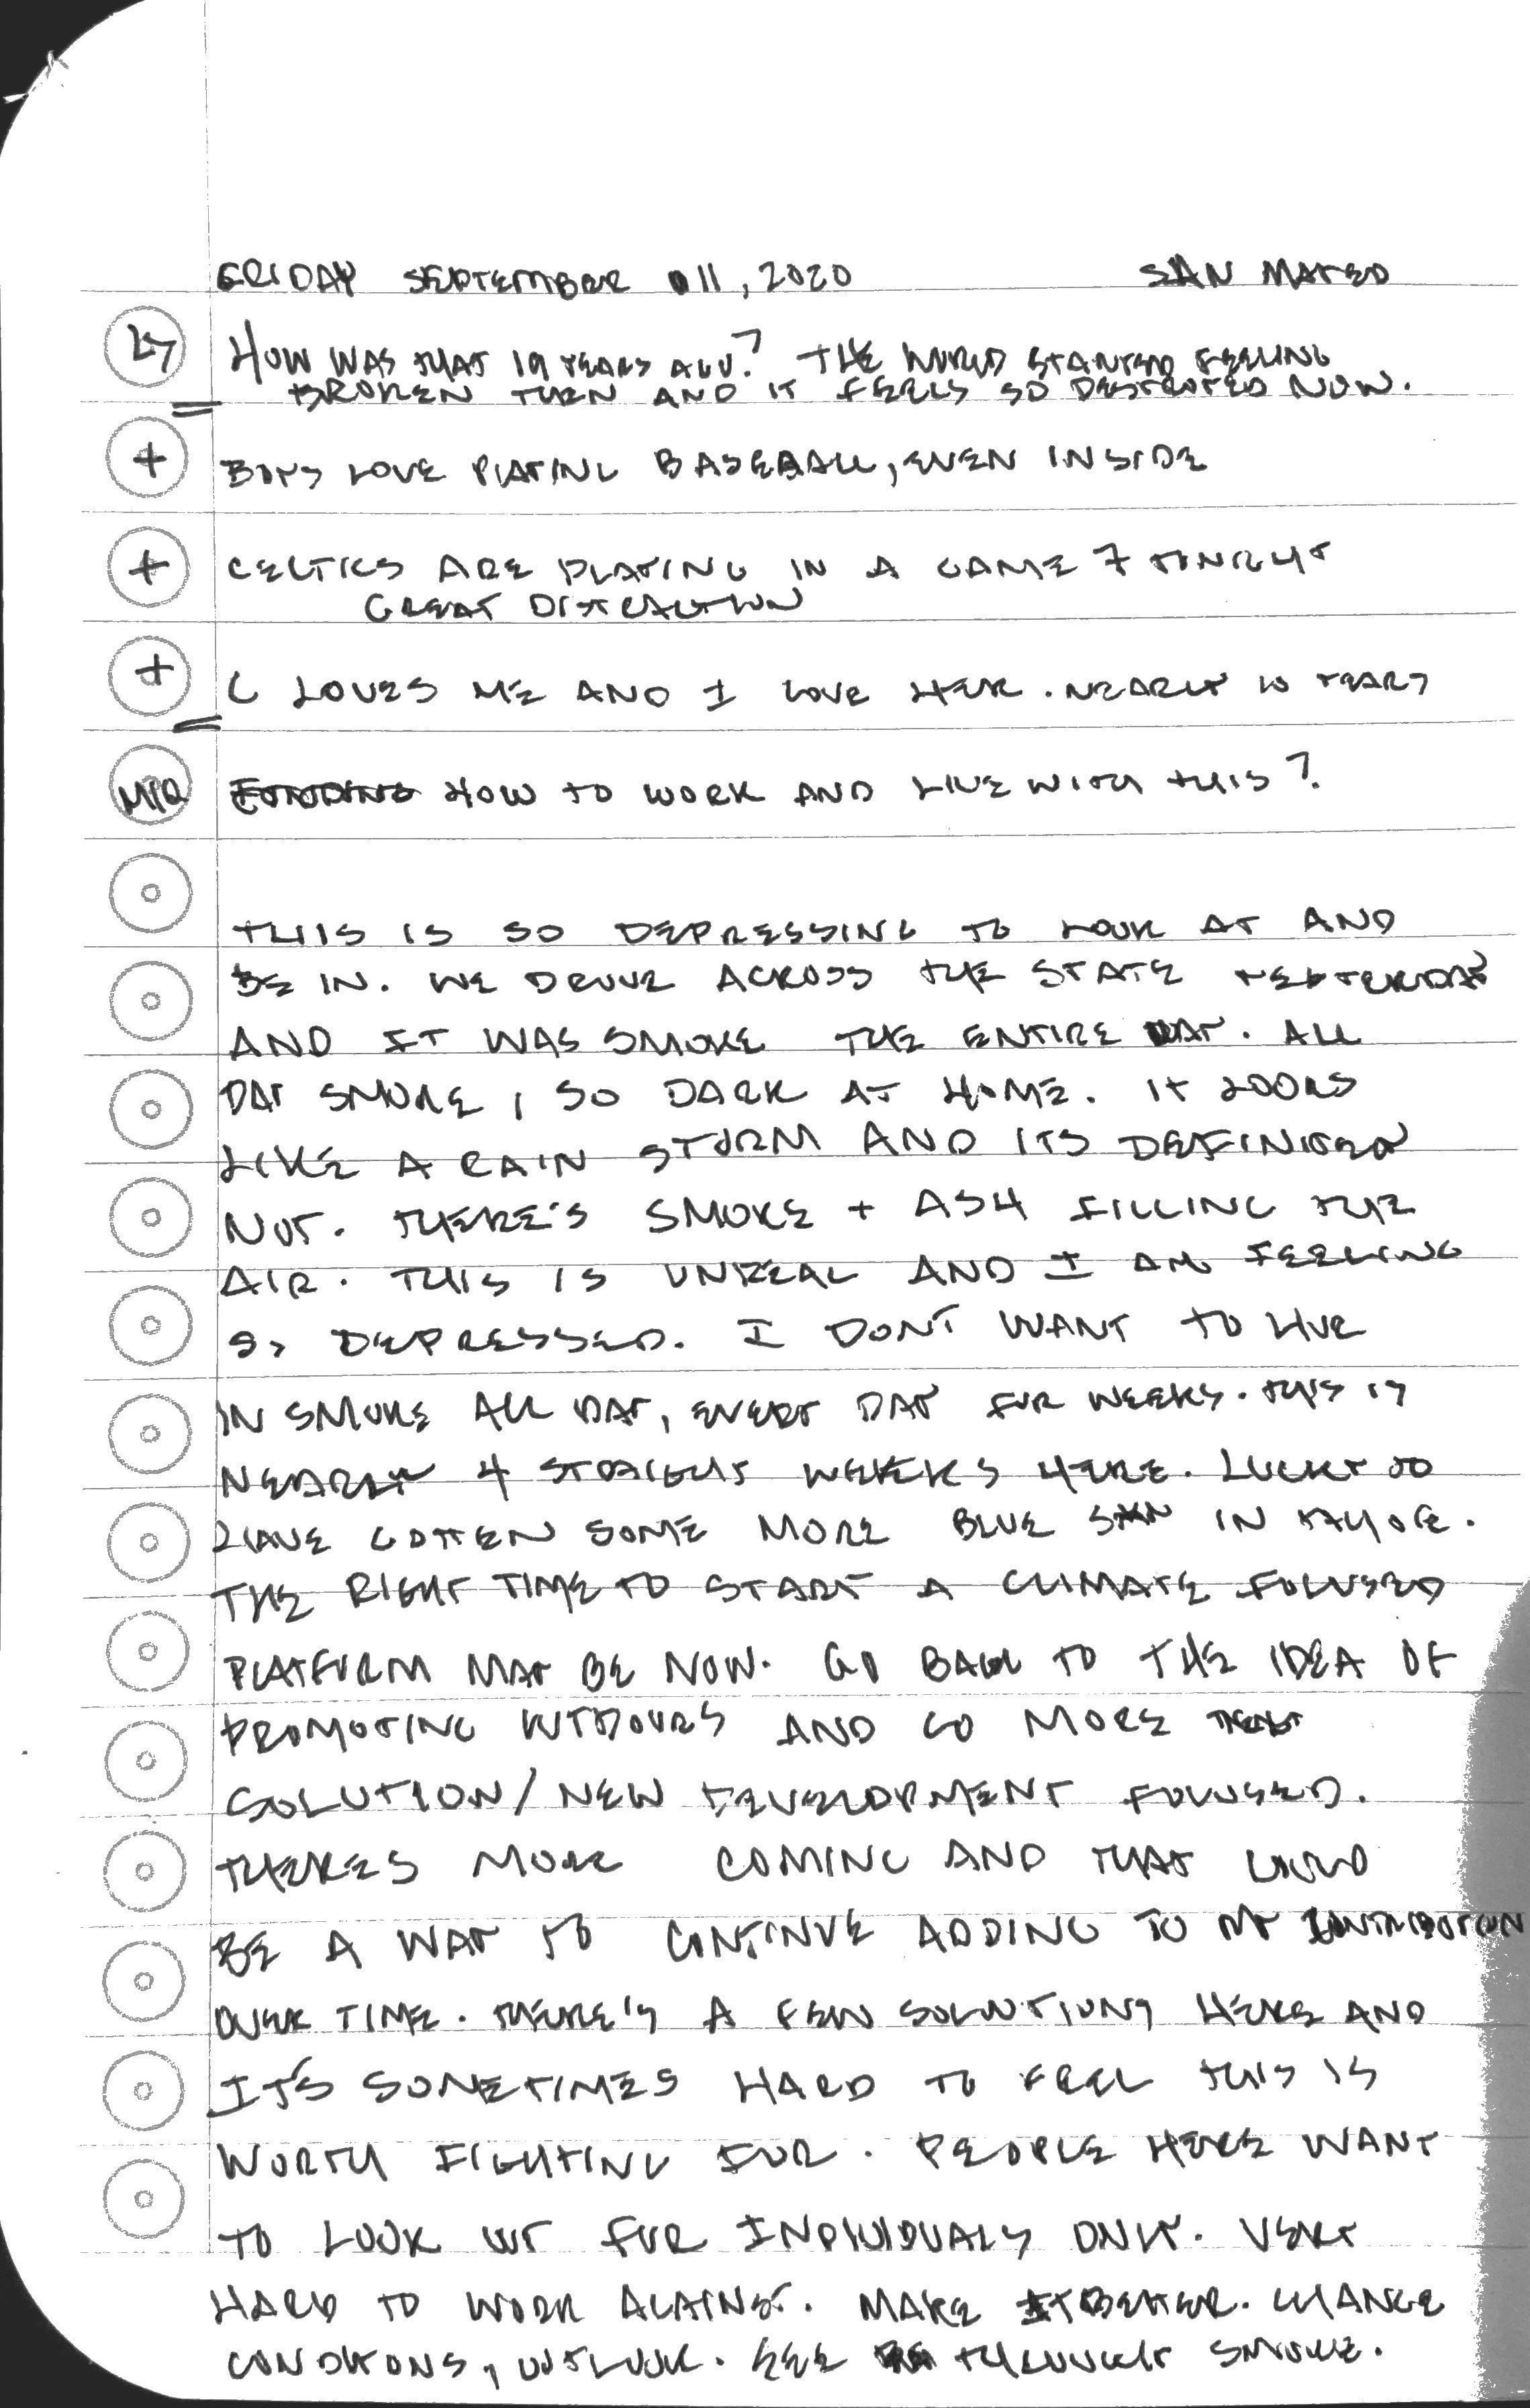 FRIDAY SEPTEMBER 11, 2020 SAN MATEO
HOW WAS THAT 19 YEARS AGO? THE WORLD STARTED FEELING
BROKEN THEN AND IT FEELS SO DESTROYED NOW.
+ BOYS LOVE PLAYING BASEBALL, EVEN INSIDE
+ CELTICS ARE PLAYING IN A GAME 7 TONIGHT
GREAT DISTRACTION
+ C LOVES ME AND I LOVE HER. NEARLY 10 YEARS
MIQ HOW TO WORK AND LIVE WITH THIS?
THIS IS SO DEPRESSING TO LOOK AT AND
BE IN. WE DROVE ACROSS THE STATE YESTERDAY
AND IT WAS SMOKE THE ENTIRE DAY. ALL
DAY SMOKE, SO DARK AT HOME. IT LOOKS
LIKE A RAIN STORM AND ITS DEFINITELY
NOT. THERE'S SMOKE + ASH FILLING THE
AIR. THIS IS UNREAL AND I AM FEELING
SO DEPRESSED. I DON'T WANT TO LIVE
IN SMOKE ALL DAY, EVERY DAY FOR WEEKS. THIS IS
NEARLY 4 STRAIGHT WEEKS HERE. LUCKY TO
HAVE GOTTEN SOME MORE BLUE IN TAHOE.
THE RIGHT TIME TO START A CLIMATE FOCUSED
PLATFORM MAY BE NOW. GO BACK TO THE IDEA OF
PROMOTING OUTDOORS AND GO MORE
SOLUTION/NEW DEVELOPMENT FOCUSED.
THERES MORE COMING AND THAT COULD
BE A WAY TO CONTINUE ADDING TO MY CONTRIBUTION
OVER TIME. THERE'S A FEW SOLUTIONS HERE AND
IT'S SOMETIMES HARD TO FEEL THIS IS
WORTH FIGHTING FOR. PEOPLE HERE WANT
TO LOOK OUT FOR INDIVIDUALS ONLY. VERY
HARD TO WORK AGAINST. MAKE IT BETTER. CHANGE
CONDITIONS, OUTLOOK. SEE THROUGH SMOKE.